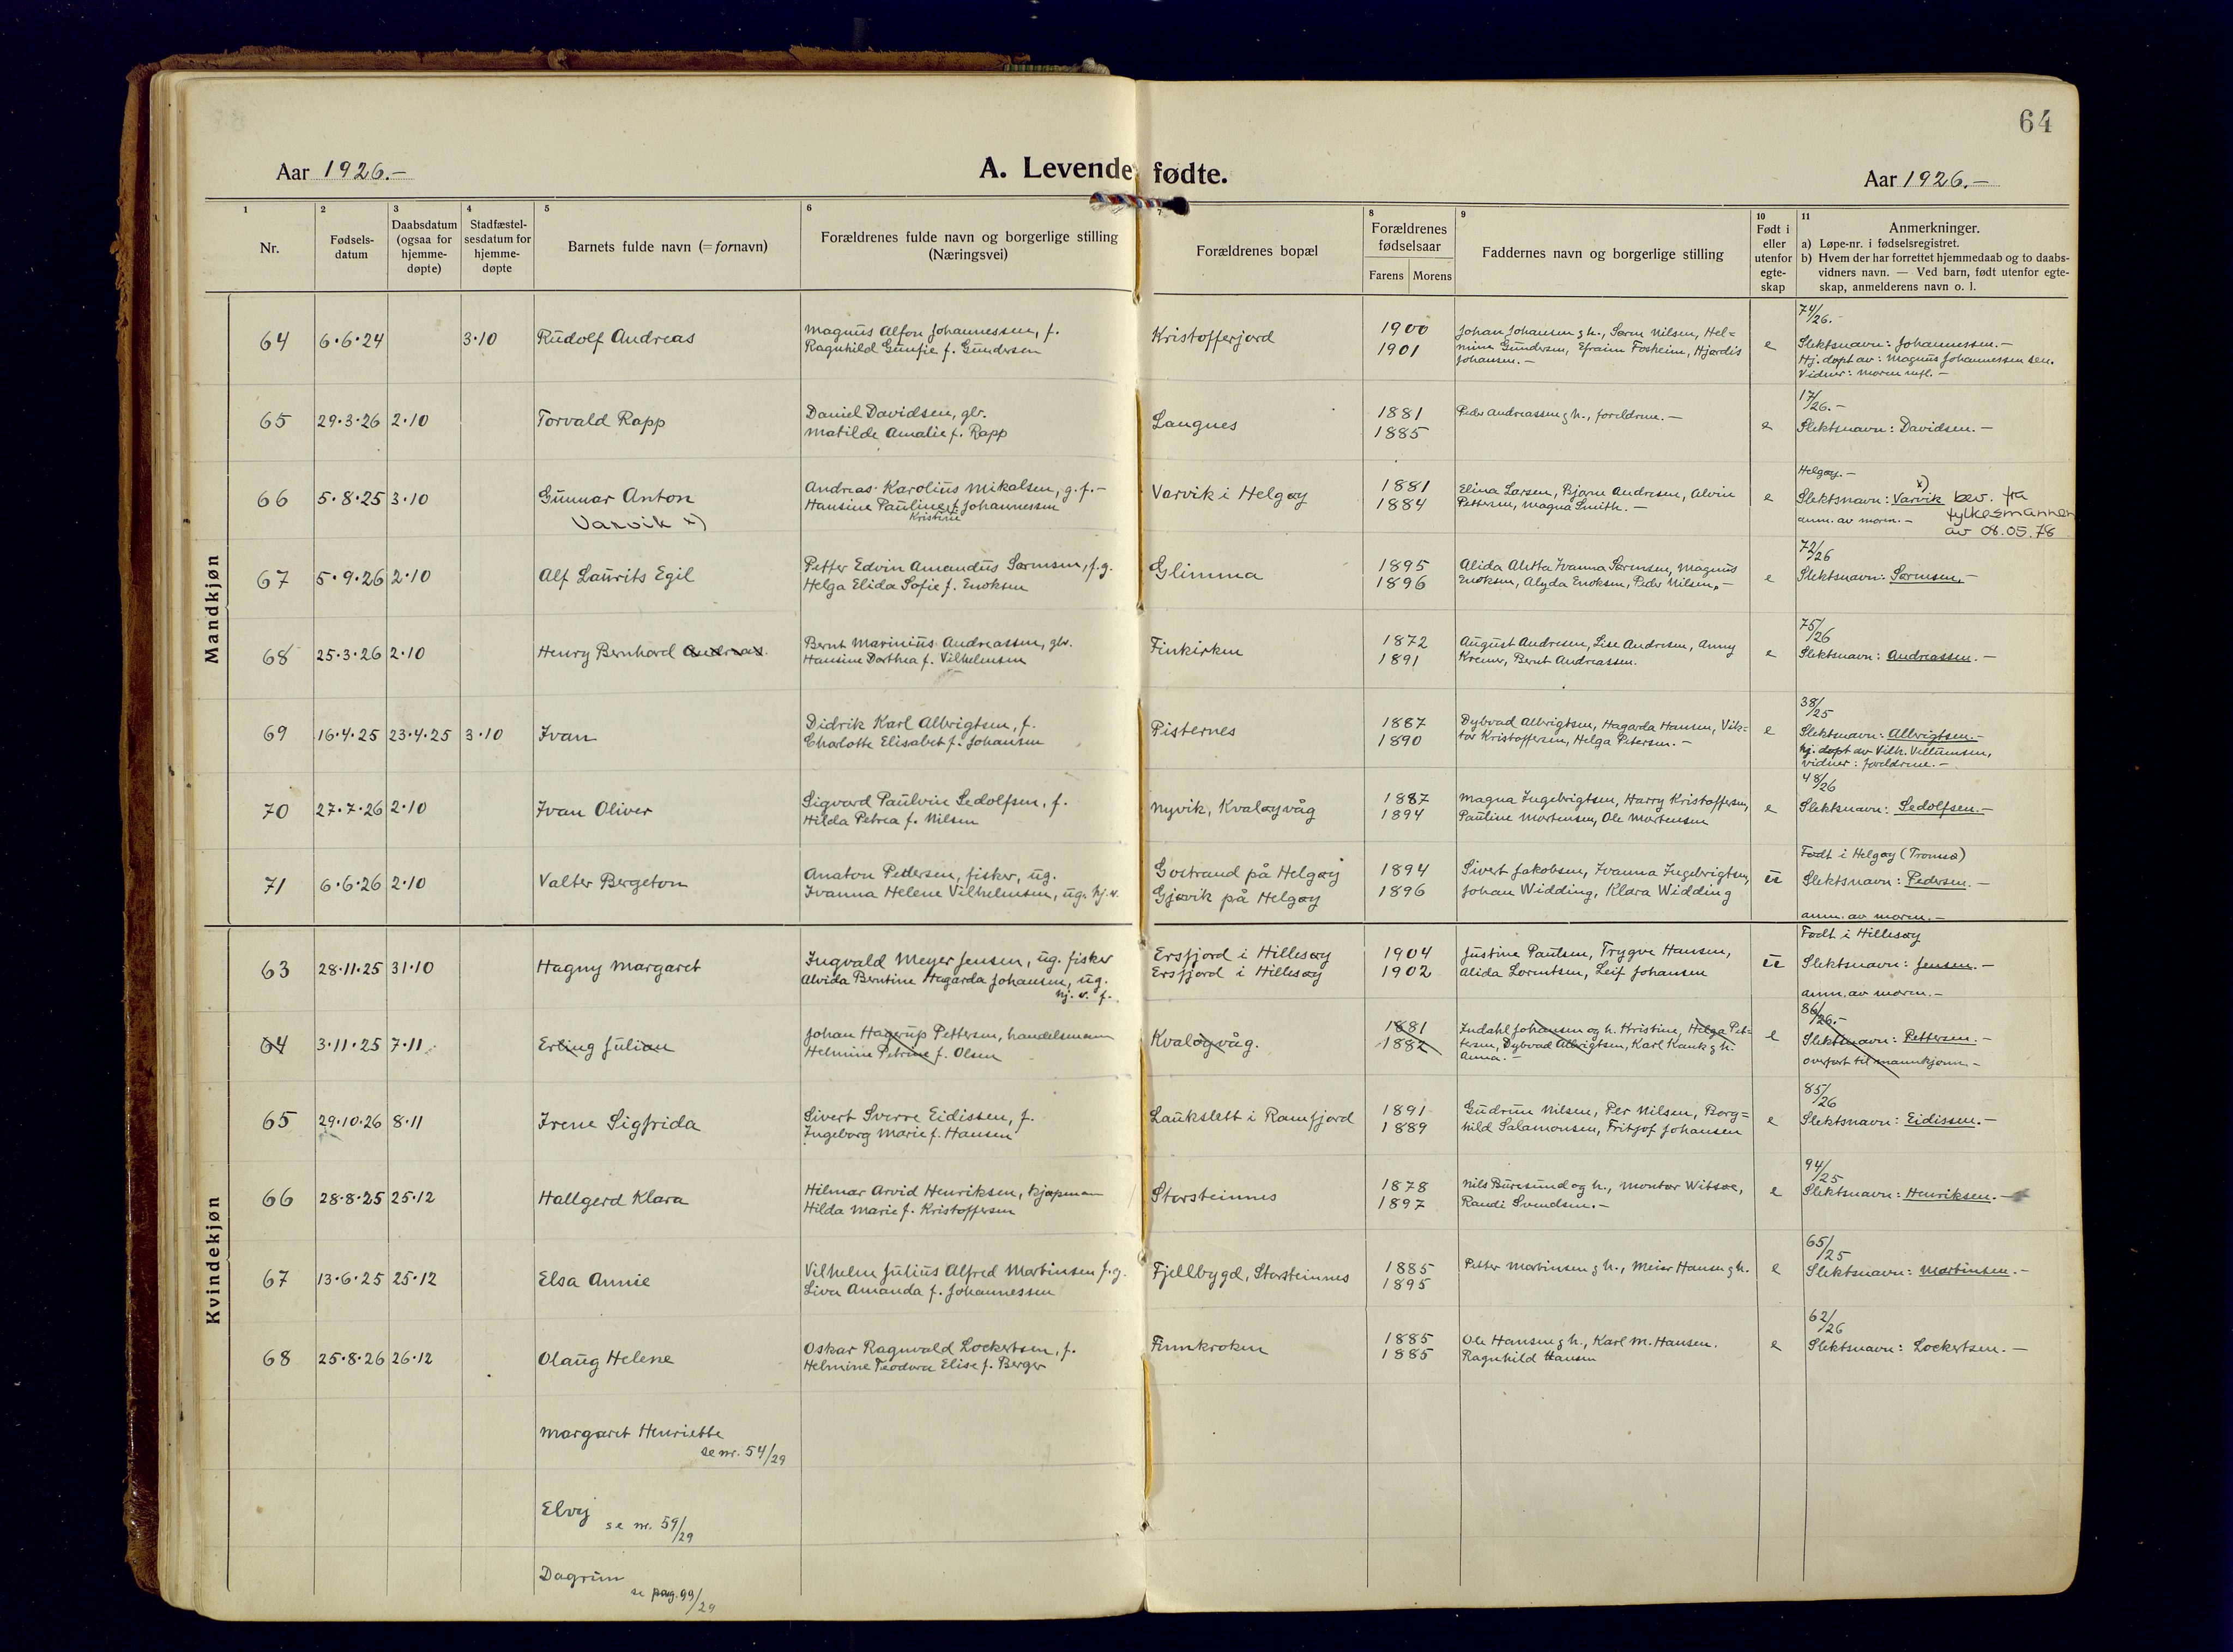 64
Aar 1926.-
A. Levende fødte.
Aar 1926.-
1 2 3 4 5 6 7 8 9 10 11
Nr.
Fødsels-
datum
Daabsdatum
(ogsaa for
hjemme-
døpte)
Stadfæstel-
sesdatum for
hjemme-
døpte
Barnets fulde navn (= fornavn)
Forældrenes fulde navn og borgerlige stilling
(Næringsvei)
Forældrenes bopæl
Forældrenes
fødselsaar
Farens Morens
Faddernes navn og borgerlige stilling
Født i
eller
utenfor
egte-
skap
Anmerkninger.
a) Løpe-nr. i fødselsregistret.
b) Hvem der har forrettet hjemmedaab og to daabs-
vidners navn. — Ved barn, født utenfor egte-
skap, anmelderens navn o. l.
Mandkjøn
64 6.6.24 3.10 Rudolf Andreas
Magnus Alfon Johannessen, f.
Ragnhild Gunfie f. Gundersen
Kristofferjord
1900
1901
Johan Johansen g h., Sørm Nilsen, Hel=
mine Gundersen, Efraim Fosheim, Hjørdis
Johansen.-
e
74/26.-
Slektsnavn: Johannessen.-
Hj. døpt av: Magnus Johannessen sen.
Vidner: moren mfl.-
65 29.3.26 2.10 Torvald Rapp
Daniel Davidsen, gbr.
Matilde Amalie f. Rapp
Langnes
1881
1885
Peder Andreassen g h., foreldrene.-
e
17/26.-
Slektsnavn: Davidsen.-
66 5.8.25 3.10 Gunnar Anton
Varvik x)
Andreas Karolius Mikalsen, g.f.-
Hansine Pauline f. Johannessen
Kristine
Varvik i Helgøy
1881
1884
Elina Larsen, Bjarne Andresen, Alvin
Pettersen, Magna Smith.-
e
Helgøy.-
x)
Slektsnavn: Varvik bev. fra
fylkesmannen
anm. av moren.-
av 08.05.78
67 5.9.26 2.10 Alf Laurits Egil
Petter Edvin Amandus Sørensen, f.g.
Helga Elida Sofie f. Enoksen
Glimma
1895
1896
Alida Aletta Ivanna Sørensen, Magnus
Enoksen, Alyda Enoksen, Peder Nilsen.-
e
72/26
Slektsnavn: Sørensen.-
68 25.3.26 2.10 Henry Bernhard Andreas.
Bernt Marinius Andreassen, gbr.
Hansine Dorthea f. Vilhelmsen
Finkirken
1872
1891
August Andresen, Lise Andresen, Anny
Kremer, Bernt Andreassen.
e
75/26
Slektsnavn: Andreassen.-
69 16.4.25 23.4.25 3.10 Ivan
Didrik Karl Albrigtsen, f.
Charlotte Elisabet f. Johansen
Pisternes
1887
1890
Dybvad Albrigtsen, Hagarda Hansen, Vik=
tor Kristoffersen, Helga Petersen.-
e
38/25
Slektsnavn: Albrigtsen.-
hj. døpt av Vilh. Villumsen,
vidner: foreldrene.-
70 27.7.26 2.10 Ivan Oliver
Sigvard Paulvin Sedolfsen, f.
Hilda Petrea f. Nilsen
Nyvik, Kvaløyvåg
1887
1894
Magna Ingebrigtsen, Harry Kristoffersen,
Pauline Mortensen, Ole Mortensen
e
48/26
Slektsnavn: Sedolfsen.-
71 6.6.26 2.10 Valter Bergeton
Anaton Pedersen, fisker, ug.
Ivanna Helene Vilhelmsen, ug. hj.v.
Gostrand på Helgøy
Gjøvik på Helgøy
1894
1896
Sivert Jakobsen, Ivanna Ingebrigtsen,
Johan Widding, Klara Widding
u
Født i Helgøy (Tromsø)
Slektsnavn: Pedersen.-
anm. av moren.-
Kvindekjøn
63 28.11.25 31.10 Hagny Margaret
Ingvald Meyer Jensen, ug. fisker
Alvida Berntine Hagarda Johansen, ug.
hj. v. f.
Ersfjord i Hillesøy
Ersfjord i Hillesøy
1904
1902
Justine Paulsen, Trygve Hansen,
Alida Lorentsen, Leif Johansen
u
Født i Hillesøy
Slektsnavn: Jensen.-
anm. av moren.-
64 3.11.25 7.11. Erling Julian
Johan Hagerup Pettersen, handelsmann
Helmine Petrine f. Olsen
Kvaløyvåg.
1881
1882
Indahl Johansen og h. Kristine, Helga Pet=
tersen, Dybvad Albrigtsen, Karl Kank g h.
Anna.-
e
86/26.-
Slektsnavn: Pettersen.-
overført til mannkjønn.-
65 29.10.26 8.11 Irene Sigfrida
Sivert Sverre Eidissen, f.
Ingeborg Marie f. Hansen
Laukslett i Ramfjord
1891
1889
Gudrun Nilsen, Per Nilsen, Borg=
hild Salamonsen, Fritjof Johansen
e
85/26
Slektsnavn: Eidissen.-
66 28.8.25 25.12 Hallgerd Klara
Hilmar Arvid Henriksen, kjøpmann
Hilda Marie f. Kristoffersen
Storsteinnes
1878
1897
Nils Buresund og h., montør Witsøe,
Randi Svendsen.-
e
94/25
Slektsnavn: Henriksen.-
67 13.6.25 25.12 Elsa Annie
Vilhelm Julius Alfred Martinsen f.g.
Liva Amanda f. Johannessen
Fjellbygd, Storsteinnes
1885
1895
Petter Martinsen g h., Meier Hansen g h.
e
65/25
Slektsnavn: Martinsen.-
68 25.8.26 26.12 Olaug Helene
Oskar Ragnvald Lockertsen, f.
Helmine Teodora Elise f. Berger
Finnkroken
1885
1885
Ole Hansen g h., Karl M. Hansen.
Ragnhild Hansen
e
62/26
Slektsnavn: Lockertsen.-
Margaret Henriette
se nr. 54/29
Elvej
se nr. 59/29
Dagrun
se pag. 99/29